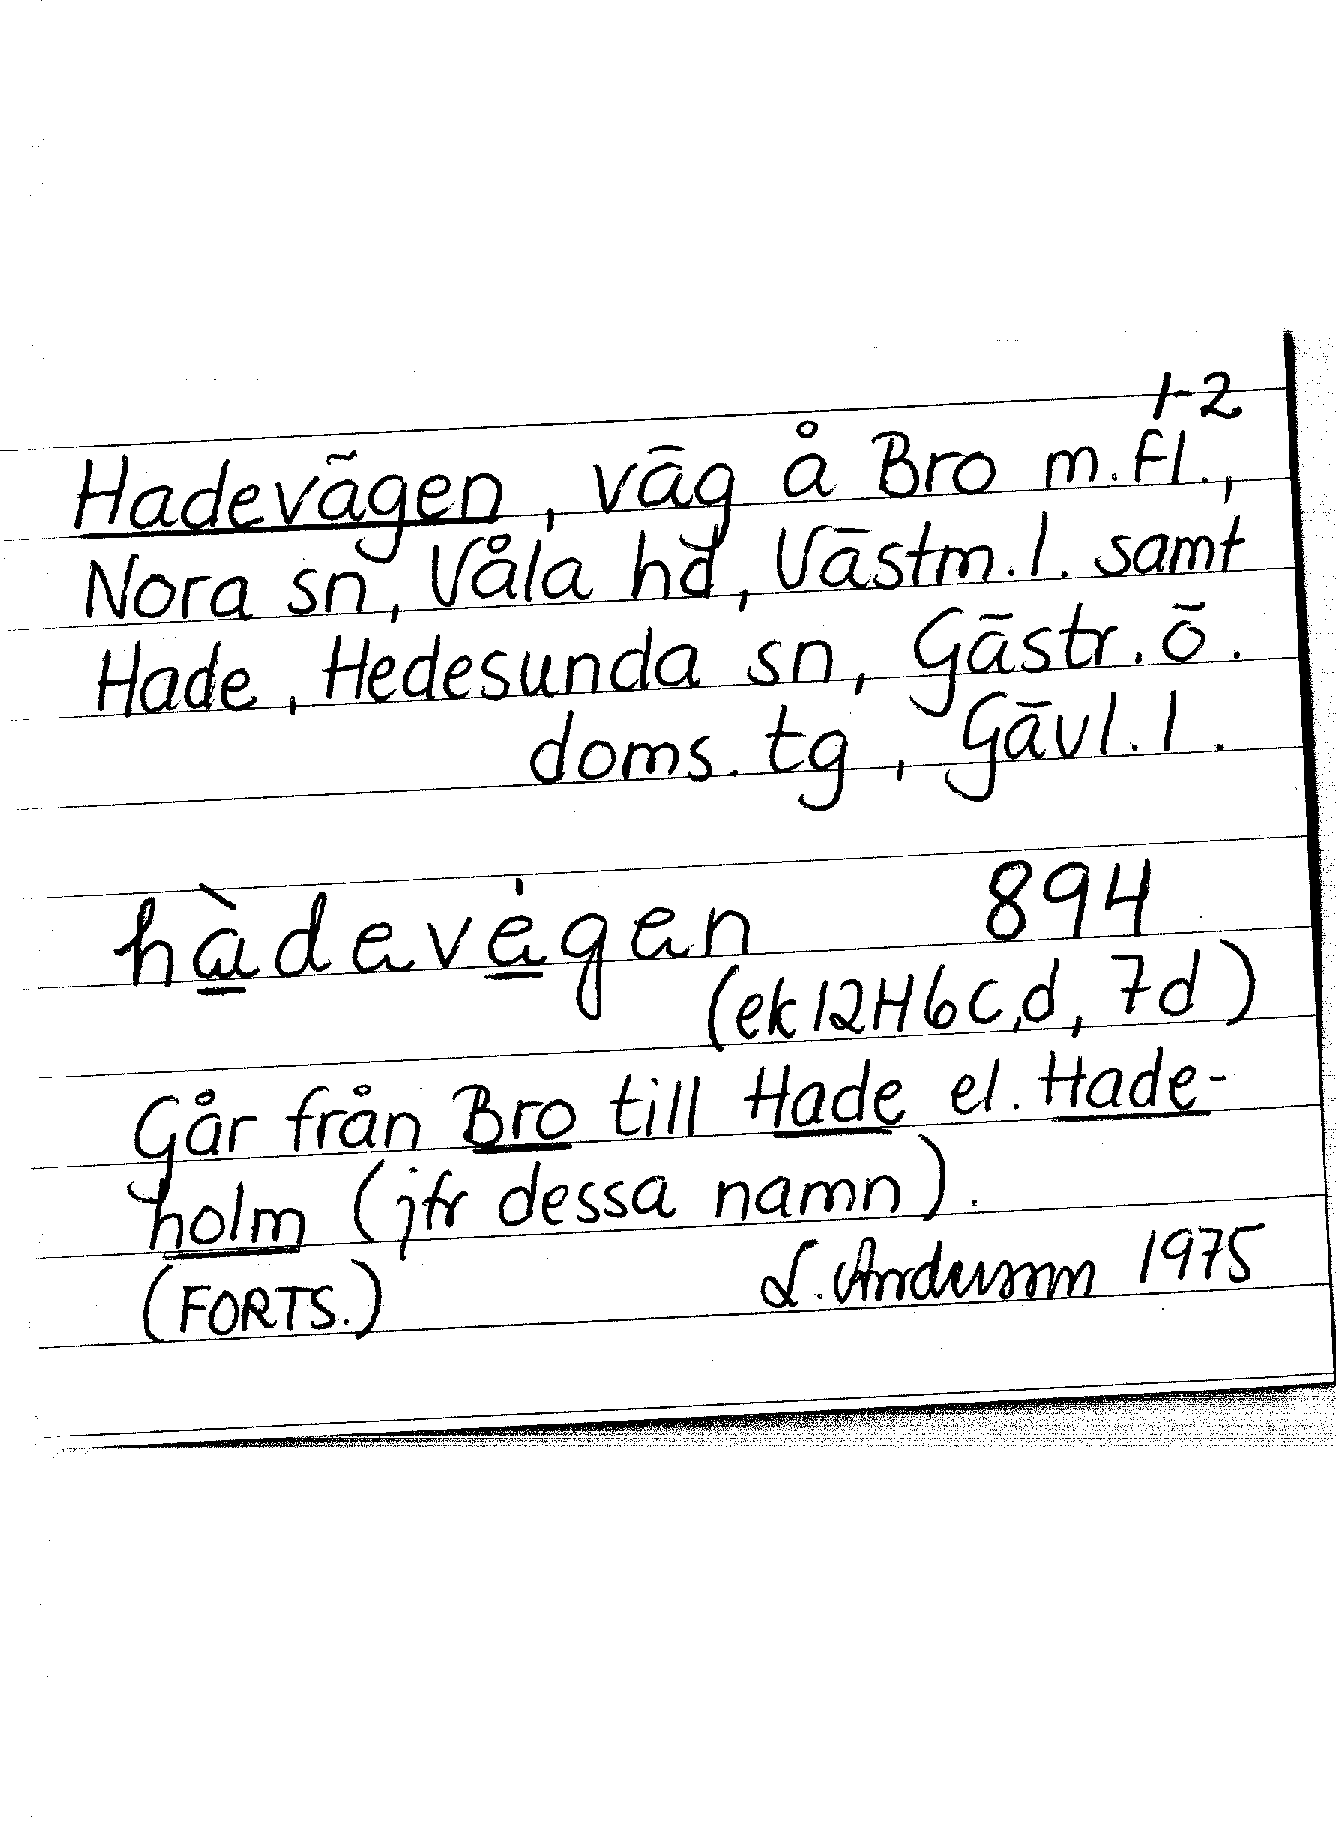 1-2
Hadevägen, väg å Bro m.fl.,
Nora sn, Våla hd, Västm.l. samt
Hade, Hedesunda sn, Gästr.ö.
doms.tg, Gävl.l.
hàdevėgen 894
(ek12H6c,d, 7d)
Går från Bro till Hade el. Hade-
holm (jfr dessa namn).
(FORTS.) L. Andersson 1975